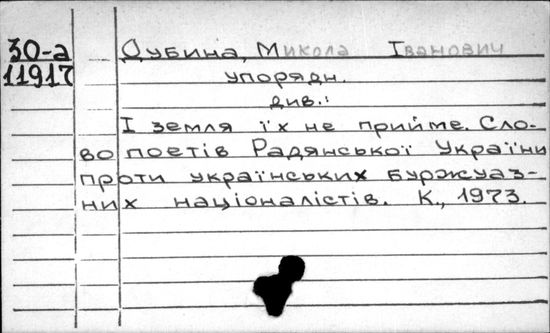 30-а Дубина, Микола Іванович
11917 упорядн.
див.:
І земля їх не прийме. Сло-
во поетів Радянської України
проти українських буржуаз-
них націоналістів. К., 1973.